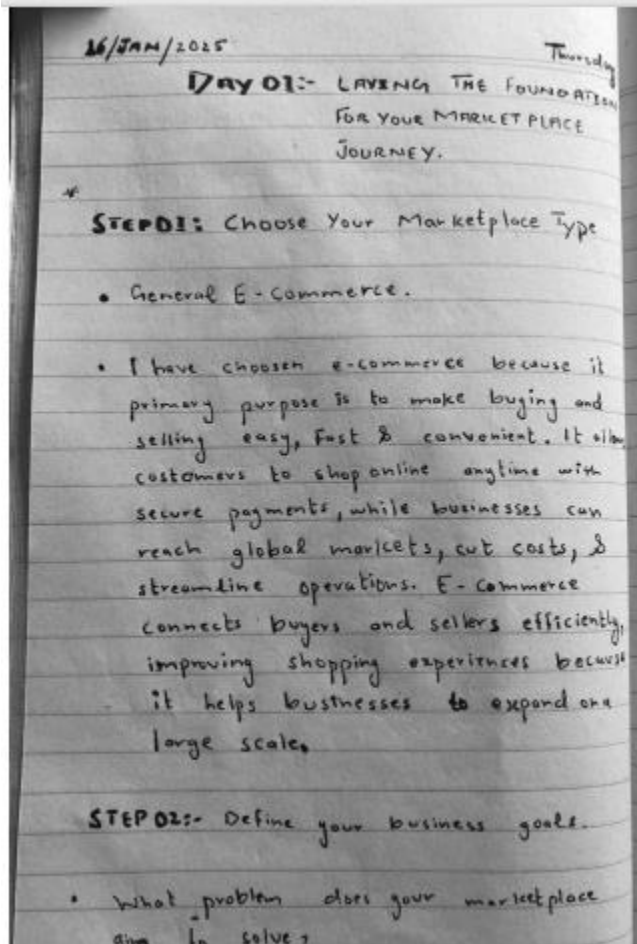 16/JAN/2025
Thursday
DAY 01:- LAYING THE FOUNDATION
FOR YOUR MARKET PLACE
JOURNEY.
*
STEP01: Choose Your Marketplace Type
• General E-Commerce.
• I have choosen e-commerce because it
primary purpose is to make buying and
selling easy, Fast & convenient. It allow
costomers to shop online anytime with
secure payments, while businesses can
reach global markets, cut costs, &
streamline operations. E-Commerce
connects buyers and sellers efficiently,
improving shopping experiences because
it helps businesses to expand on a
large scale.
STEP 02:- Define your business goals.
• What problem does your marketplace
aim to solve?